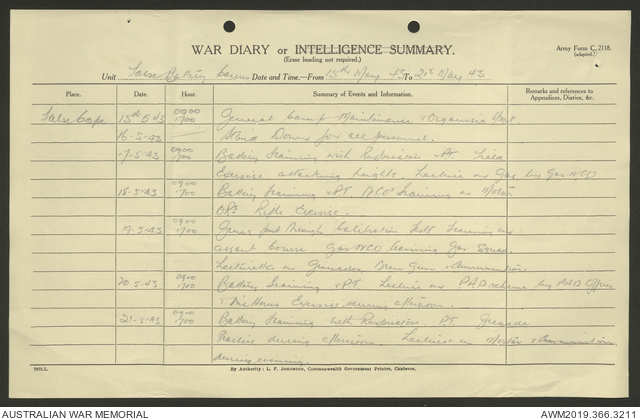 WAR DIARY or INTELLIGENCE SUMMARY.
(Erase heading not required.)
Army Form C. 2118.
(adapted.)
Unit False Battery Date and Time.—From 15th May 43 To 21st May 43
Place. Date. Hour. Summary of Events and Information. Remarks and references to Appendices, Diaries, &c.
False Cape 15th 5 43 0900 1700 General Camp Maintenance &
16-5-43 Stand Down for all personnel.
17-5-43 0900 1700 Battery Training with Respirators PT Field
Exercise attacking heights. Lecture on Gas by Gas NCO
18-5-43 0900 1700 Battery Training & PT. NCO's Training on Mortar
ORs Rifle Exercise.
19-5-43 0900 1700 Guns put through Calibration Test Training on
assault course Gas NCO training Gas
Lecturettes on Grenades Bren Gun &
20.5.43 0900 1700 Battery Training & PT. Lecture on PAD scheme by PAD Officer
Exercise during afternoon.
21-5-43 0900 1700 Battery Training with Respirators. PT. Grenade
Practice during afternoon. on Mortar & Communication
during evening.
By Authority: L. F. Johnston, Commonwealth Government Printer, Canberra.
AUSTRALIAN WAR MEMORIAL
AWM2019.366.3211